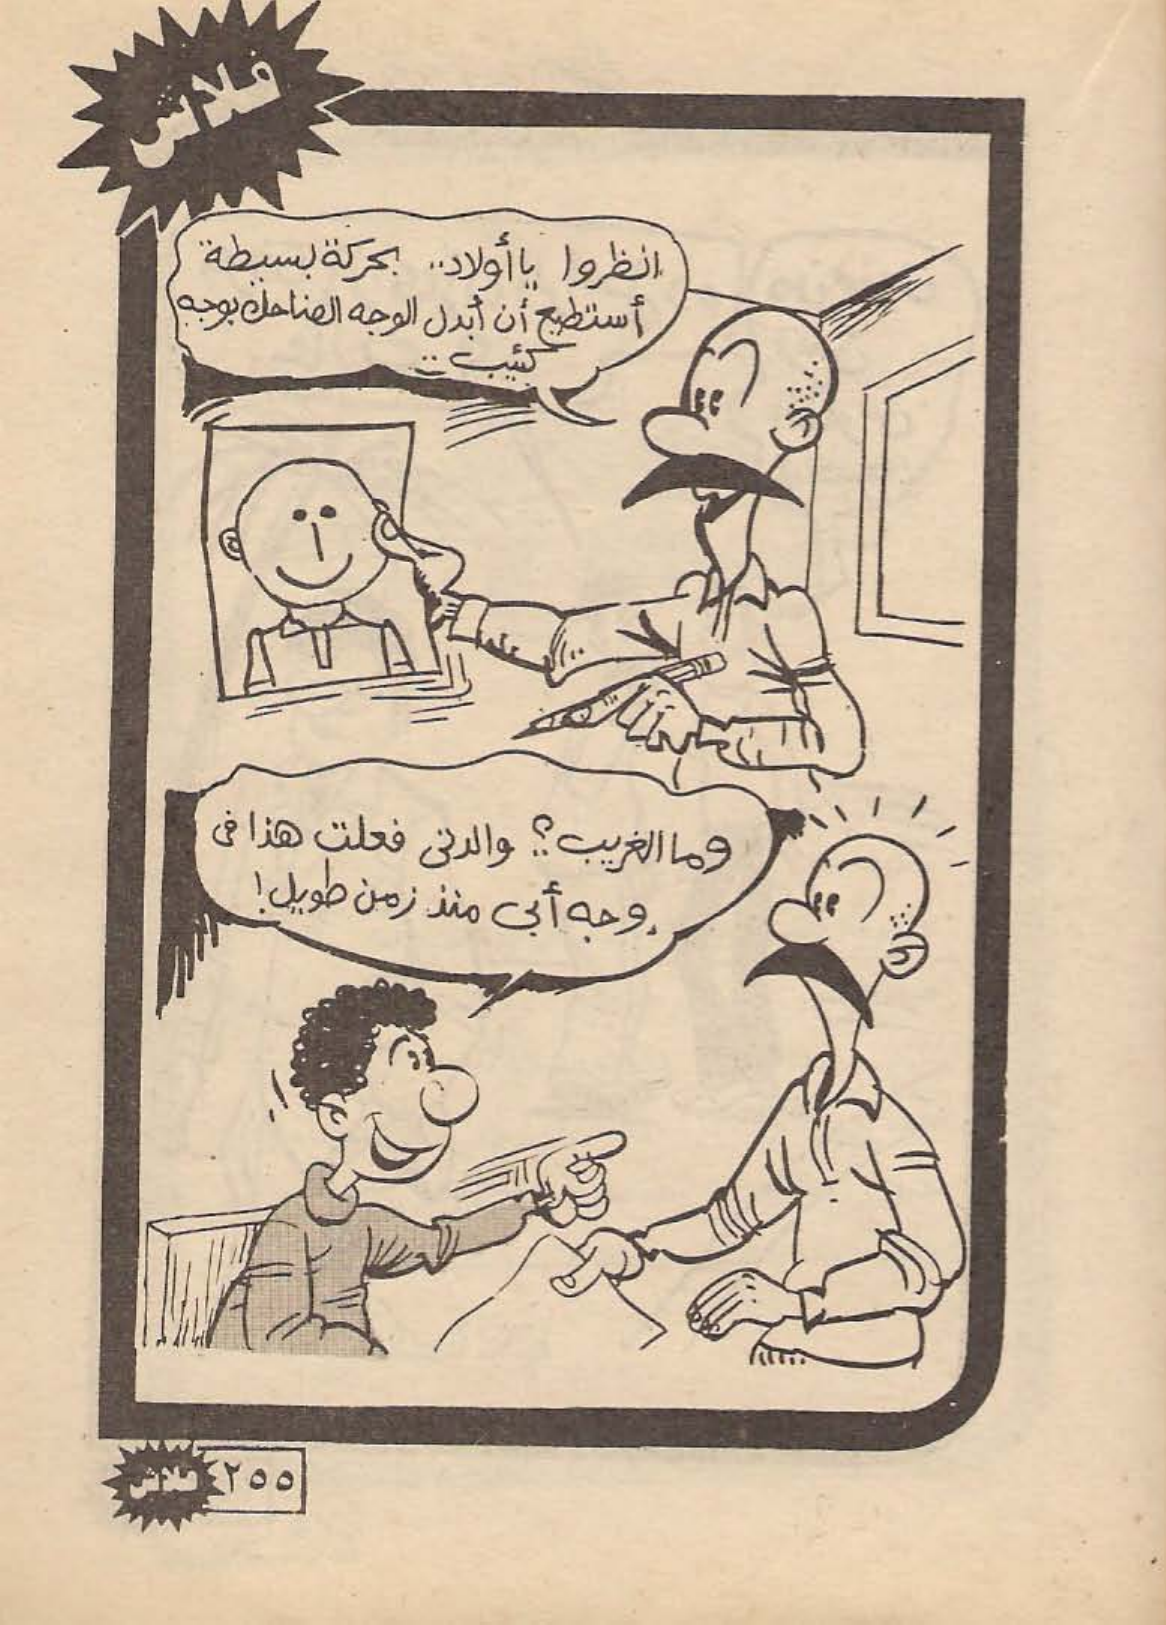 فلاش
انظروا يا أولاد.. بحركة بسيطة
أستطيع أن أبدل الوجه الضاحك بوجه
كئيب..
وما الغريب؟ والدتى فعلت هذا فى
وجه أبى منذ زمن طويل!
٢٥٥ فلاش